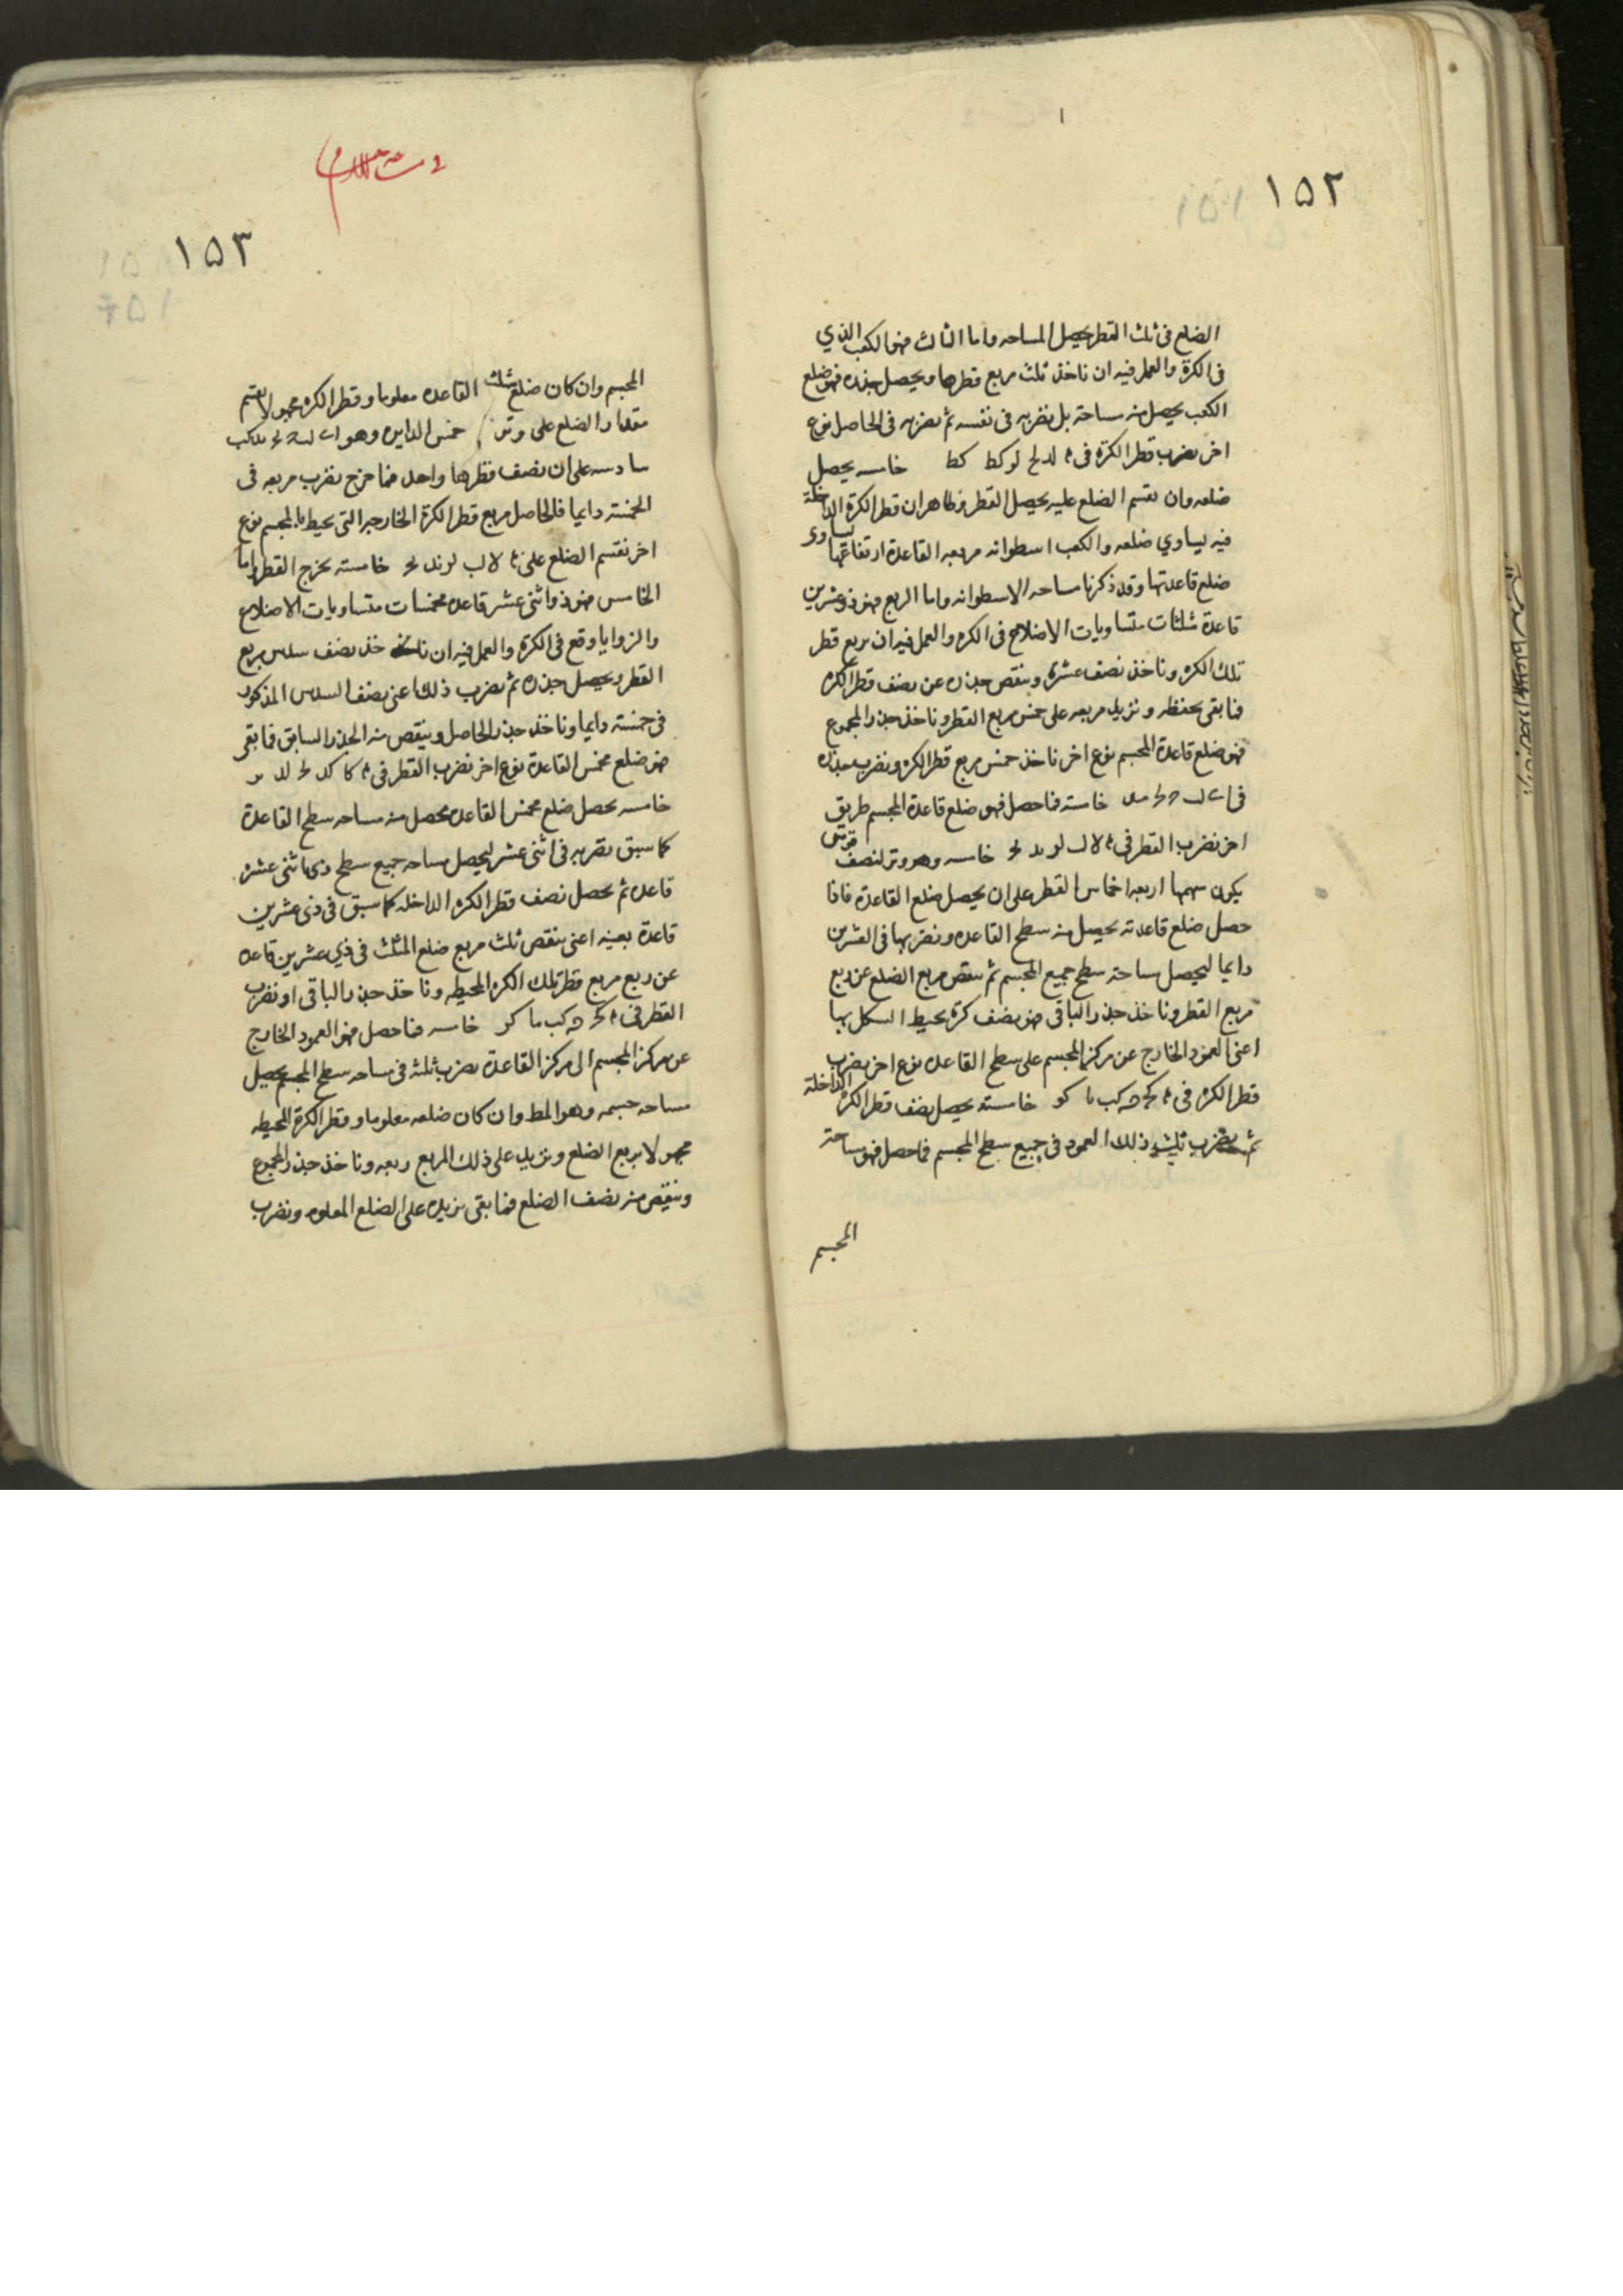 ١٥٢
الضلع فى ثلث القطر يحصل المساحه واما الثالث فهو المكعب الذي
فى الكرة والعمل فيه ان ناخذ ثلث مربع قطرها ويحصل جذره فهو ضلع
الكعب يحصل منه مساحته بل نضربه فى نفسه ثم نضربه فى الحاصل نوع
اخر نضرب قطر الكرة فى لد لح لو كط كط خامسه يحصل
ضلعه وان نقسم الضلع عليه يحصل القطر وظاهر ان قطر الكرة الداخلة
فيه يساوي ضلعه والكعب اسطوانه مربعه القاعدة ارتفاعها يساوى
ضلع قاعدتها وقد ذكرنا مساحه الاسطوانه واما الربع فهو ذو عشرين
قاعدة مثلثات متساويات الاضلاع فى الكره والعمل فيه ان نربع قطر
تلك الكره وناخذ نصف عشره وننقص جذره عن نصف قطر الكره
فما بقى نحفظه ونزيد مربعه على خمس مربع القطر وناخذ جذر المجموع
فهو ضلع قاعدة المجسم نوع اخر ناخذ خمس مربع قطر الكره ونضرب جذره
فى خامسة فما حصل فهو ضلع قاعدة المجسم طريق
اخر نضرب القطر فى خامسه وهو وتر لنصف قوس
يكون سهمها اربعه اخماس القطر على ان يحصل ضلع القاعدة فاذا
حصل ضلع قاعدته يحصل منه سطح القاعده ونضربها فى العشرين
دايما ليحصل مساحة سطح جميع المجسم ثم ننقص مربع الضلع عن ربع
مربع القطر وناخذ جذر الباقى فهو نصف كرة يحيط الشكل بها
اعنى العمود الخارج عن مركز المجسم على سطح القاعده نوع اخر نضرب
قطر الكره فى كب ما كو خامسة يحصل نصف قطر الكرة الداخلة
ثم نضرب ثلث ذلك العمود فى جميع سطح المجسم فما حصل فهو مساحة
المجسم
١٥٣
المجسم وان كان ضلع مثلث القاعده معلوما وقطر الكره مجهولا نقسم
مقدار الضلع على وتر خمس الدايره وهو
سادسه على ان نصف قطرها واحد فما خرج نضرب مربعه فى
الخمسة دايما فالحاصل مربع قطر الكرة الخارجه التى يحيط بالمجسم نوع
اخر نقسم الضلع على خامسته يخرج القطر واما
الخامس فهو ذو اثنى عشر قاعده مخمسات متساويات الاضلاع
والزوايا وقع فى الكرة والعمل فيه ان ناخذ نصف سدس مربع
القطر ويحصل جذره ثم نضرب ذلك اعنى نصف السدس المذكور
فى خمسة دايما وناخذ جذر الحاصل وينقص منه الجذر السابق فما بقى
فهو ضلع مخمس القاعدة نوع اخر نضرب القطر فى كا كد
خامسه يحصل ضلع مخمس القاعده يحصل منه مساحه سطح القاعدة
كما سبق نضربه فى اثنى عشر ليحصل مساحه جميع سطح ذى اثنى عشر
قاعده ثم يحصل نصف قطر الكره الداخله كما سبق فى ذى عشرين
قاعدة بعينه اعنى ننقص ثلث مربع ضلع المثلث فى ذي عشرين قاعده
عن ربع مربع قطر تلك الكره المحيطه وناخذ جذر الباقى او نضرب
القطر فى كب ما كو خامسه فما حصل فهو العمود الخارج
عن مركز المجسم الى مركز القاعدة نضرب ثلثه فى مساحه سطح المجسم يحصل
مساحه جسمه وهو المط وان كان ضلعه معلوما وقطر الكرة المحيطه
مجهولا نربع الضلع ونزيد على ذلك المربع ربعه وناخذ جذر المجموع
وننقص منه نصف الضلع فما بقى نزيده على الضلع المعلوم ونضرب